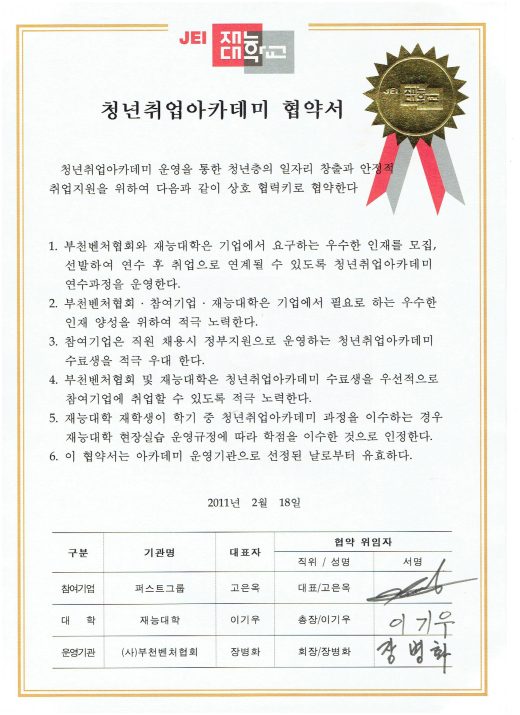 JEI 재능대학교
청년취업아카데미 협약서
JEI 재능대학교
청년취업아카데미 운영을 통한 청년층의 일자리 창출과 안정적
취업지원을 위하여 다음과 같이 상호 협력키로 협약한다
1. 부천벤처협회와 재능대학은 기업에서 요구하는 우수한 인재를 모집,
선발하여 연수 후 취업으로 연계될 수 있도록 청년취업아카데미
연수과정을 운영한다.
2. 부천벤처협회 · 참여기업 · 재능대학은 기업에서 필요로 하는 우수한
인재 양성을 위하여 적극 노력한다.
3. 참여기업은 직원 채용시 정부지원으로 운영하는 청년취업아카데미
수료생을 적극 우대 한다.
4. 부천벤처협회 및 재능대학은 청년취업아카데미 수료생을 우선적으로
참여기업에 취업할 수 있도록 적극 노력한다.
5. 재능대학 재학생이 학기 중 청년취업아카데미 과정을 이수하는 경우
재능대학 현장실습 운영규정에 따라 학점을 이수한 것으로 인정한다.
6. 이 협약서는 아카데미 운영기관으로 선정된 날로부터 유효하다.
2011년 2월 18일
구분 기관명 대표자 협약 위임자
직위 / 성명 서명
참여기업 퍼스트그룹 고은옥 대표/고은옥
대 학 재능대학 이기우 총장/이기우 이기우
운영기관 (사)부천벤처협회 장병화 회장/장병화 장병화